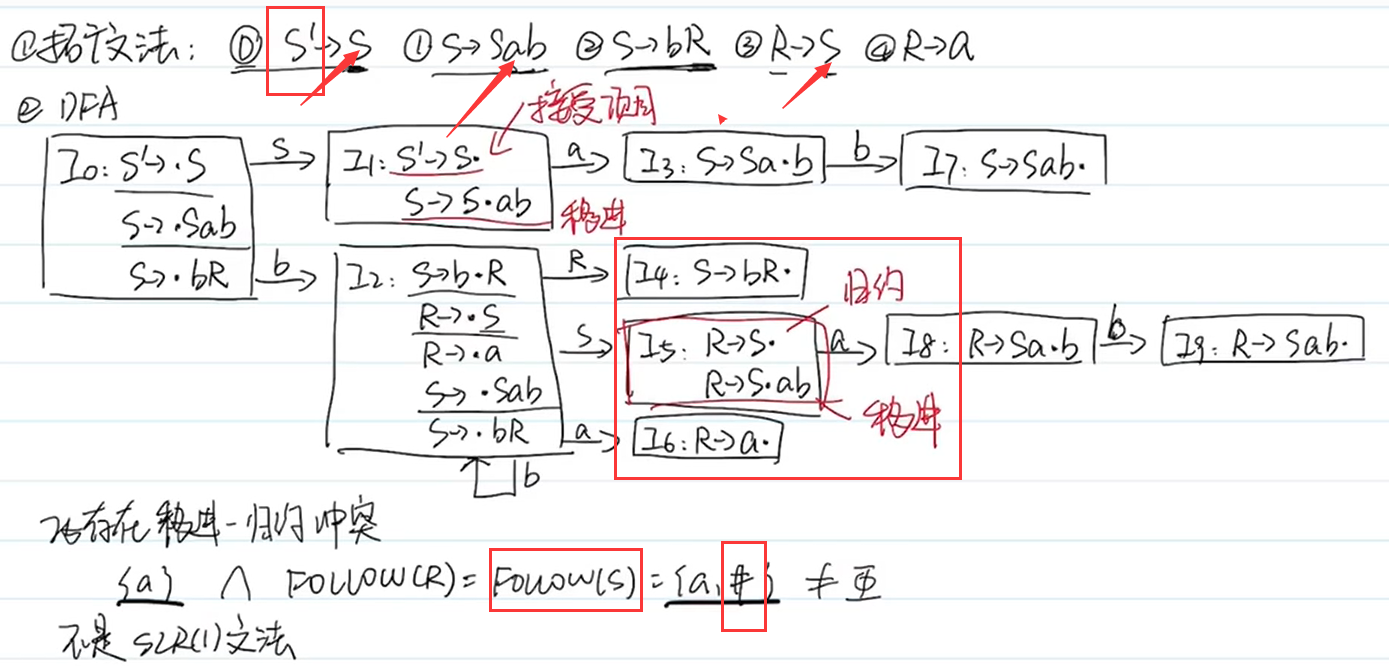 ①拓广文法： ⓪ S'→S ① S→Sab ② S→bR ③ R→S ④ R→a
② DFA
接受项目
I0: S'→·S
S→·Sab
S→·bR
S
b
I1: S'→S·
S→S·ab
移进
a
I3: S→Sa·b
b
I7: S→Sab·
I2: S→b·R
R→·S
R→·a
S→·Sab
S→·bR
b
R
I4: S→bR·
归约
S
I5: R→S·
R→S·ab
移进
a
I8: R→Sa·b
b
I9: R→Sab·
a
I6: R→a·
存在移进-归约冲突
{a} ∧ FOLLOW(R)= FOLLOW(S)={a, #} ≠
不是SLR(1)文法